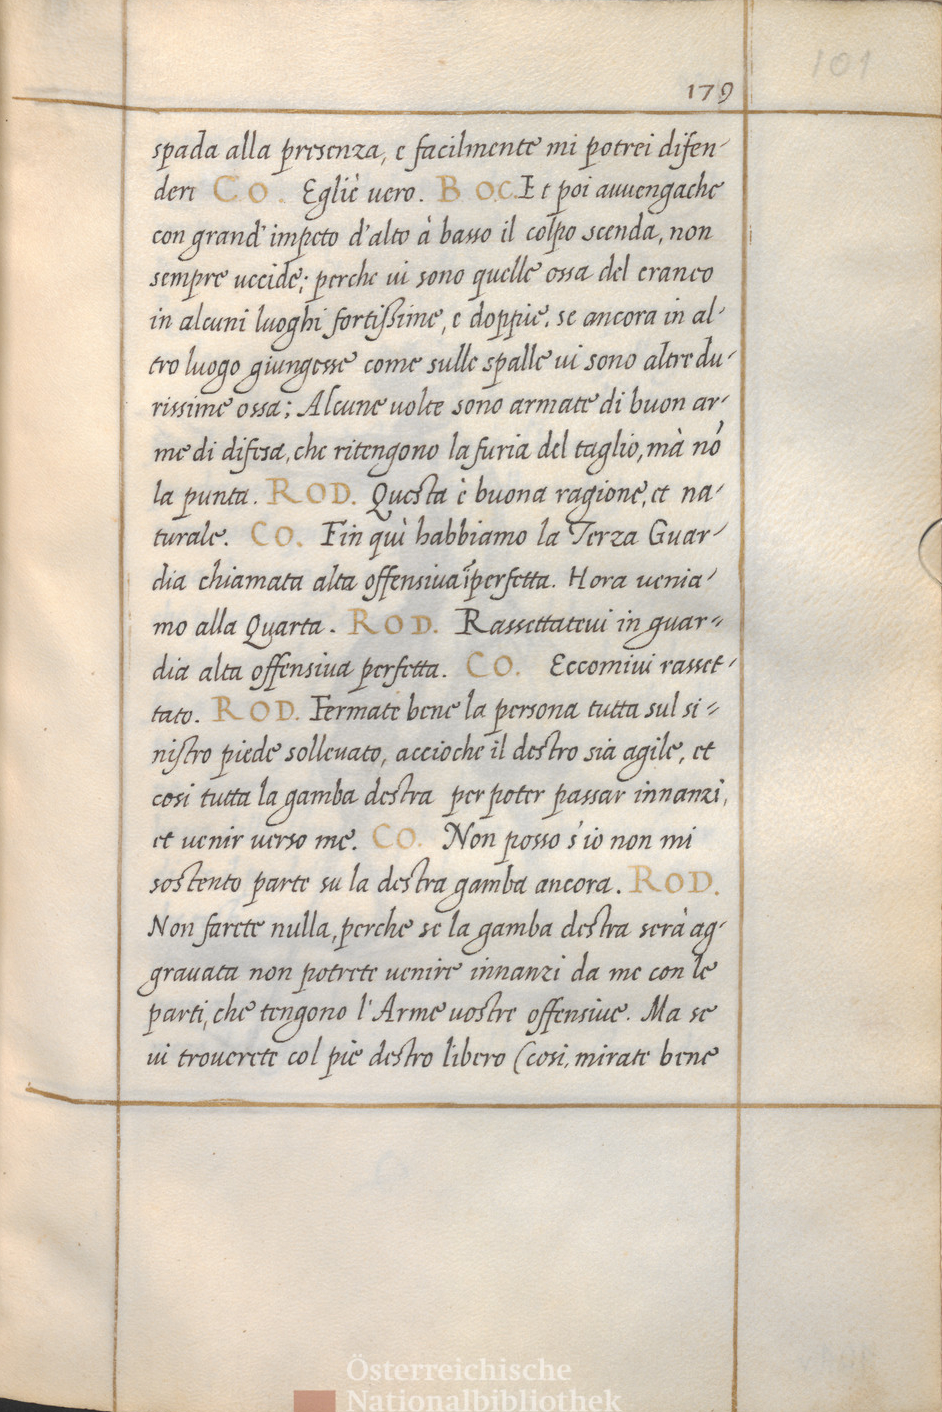 101
179
spada alla presenza, e facilmente mi potrei difen-
dere CO. Egliè vero. BOC. Et poi auuengache
con grand' impeto d'alto à basso il colpo scenda, non
sempre uccide; perche ui sono quelle ossa del craneo
in alcuni luoghi fortißime, e doppie, se ancora in al-
tro luogo giungesse come sulle spalle ui sono altre du-
rissime ossa; Alcune uolte sono armate di buon ar-
me di difesa, che ritengono la furia del taglio, mà nõ
la punta. ROD. Questa è buona ragione, et na-
turale. CO. Fin quì habbiamo la Terza Guar-
dia chiamata alta offensiua ĩperfetta. Hora uenia-
mo alla Quarta. ROD. Rassettateui in guar-
dia alta offensiua perfetta. CO. Eccomiui rasset-
tato. ROD. Fermate bene la persona tutta sul si-
nistro piede solleuato, accioche il destro sia agile, et
cosi tutta la gamba destra per poter passar innanzi,
et uenir uerso me. CO. Non posso s'io non mi
sostento parte su la destra gamba ancora. ROD.
Non farete nulla, perche se la gamba destra serà ag-
grauata non potrete uenire innanzi da me con le
parti, che tengono l'Arme uostre offensiue. Ma se
ui trouerete col piè destro libero (cosi, mirate bene
Österreichische
Nationalbibliothek